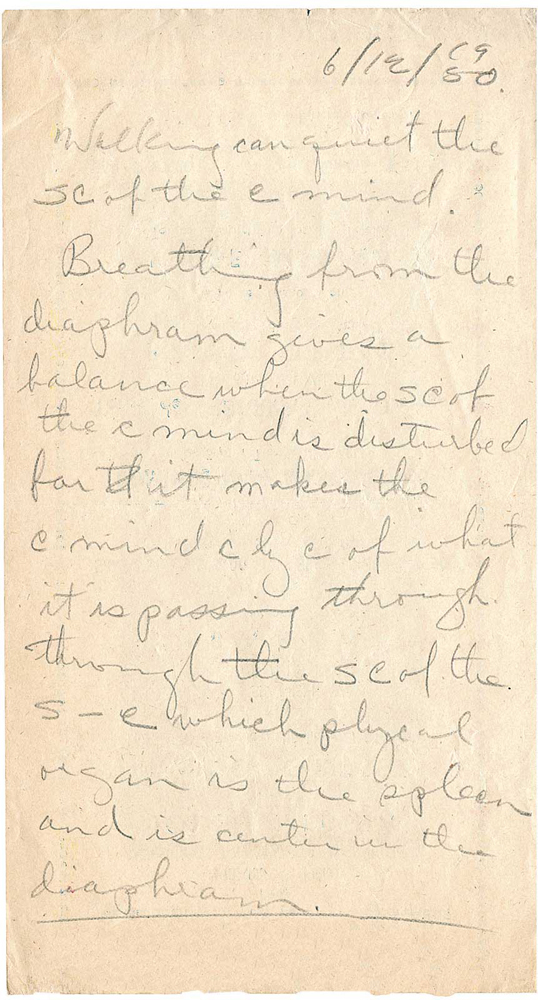 6/12/19
50.
Walking can quiet the
sc of the c mind.
Breathing from the
diaphram gives a
balance when the sc of
the c mind is disturbed
for it makes the
c mind c ly c of what
it is passing through.
through the sc of the
s-c which phycal
organ is the spleen
and is center in the
diaphram.